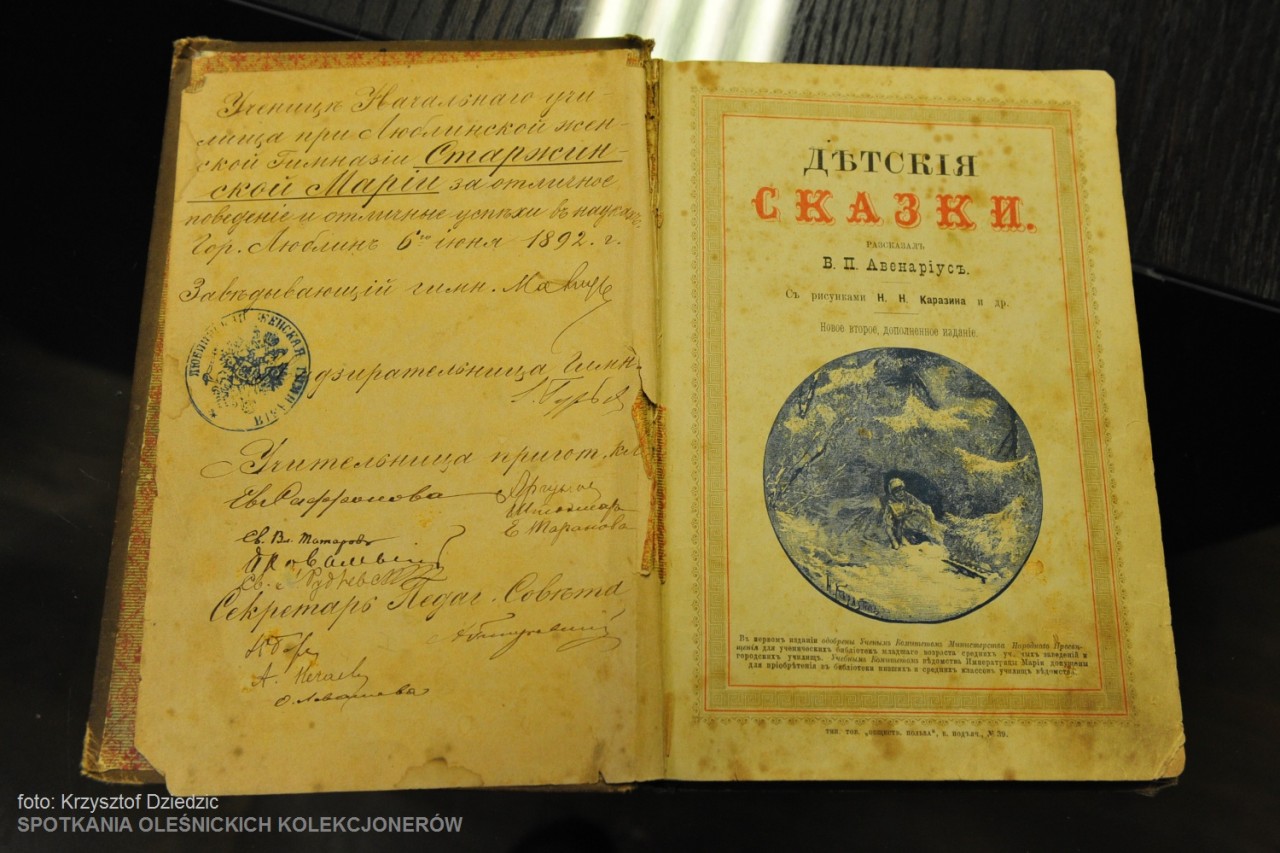 Ученицѣ Начальнаго учи-
лища при Люблинской жен-
ской Гимназіи Старжин-
ской Маріи за отличное
поведеніе и отличные успѣхи въ наукахъ.
Гор. Люблинъ 6го іюня 1892. г.
Завѣдывающій гимн.
ЛЮБЛИНСКАЯ ЖЕНСКАЯ ГИМНАЗІЯ
дзирательница Гимн.
Учительница пригот. кл
Е. Таранова
Св. Вл. Татаровъ
Секретарь Педаг. Совѣта
О. Левашева
ДѢТСКІЯ
СКАЗКИ.
РАЗСКАЗАЛЪ
В. П. Авенаріусъ.
Съ рисунками Н. Н. Каразина и др.
Новое второе, дополненное изданіе.
Въ первомъ изданіи одобрены Ученымъ Комитетомъ Министерства Народнаго Просвѣ-
щенія для ученическихъ библіотекъ младшаго возраста среднихъ уч тыхъ заведеній и
городскихъ училищъ. Учебнымъ Комитетомъ вѣдомствъ Императрицы Маріи допущены
для пріобрѣтенія въ библіотеки низшихъ и среднихъ классовъ училищъ вѣдомства.
тип. тов. „обществ. польза“, в. подъяч., № 39.
foto: Krzysztof Dziedzic
SPOTKANIA OLEŚNICKICH KOLEKCJONERÓW